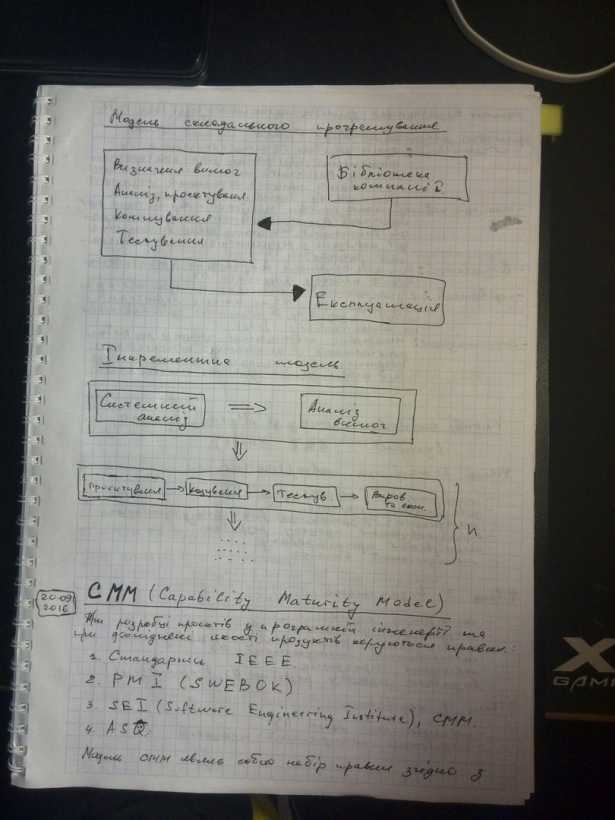 Модель складального програмування
Визначення вимог
Аналіз, проектування
Кодування
Тестування
Бібліотека
компанії
Експлуатація
Інкрементна модель
Системний
аналіз
Аналіз
вимог
Проектування
Кодування
Тестув
та
n
20.09
2016
CMM (Capability Maturity Model)
При розробці проєктів у програмній інженерії та
при дослідженні якості продуктів керуються правил.:
1. Стандарти IEEE.
2. PMI (SWEBOK)
3. SEI (Software Engineering Institute), CMM.
4. ASQ.
Модель CMM являє собою набір правил згідно з
X
GAMI